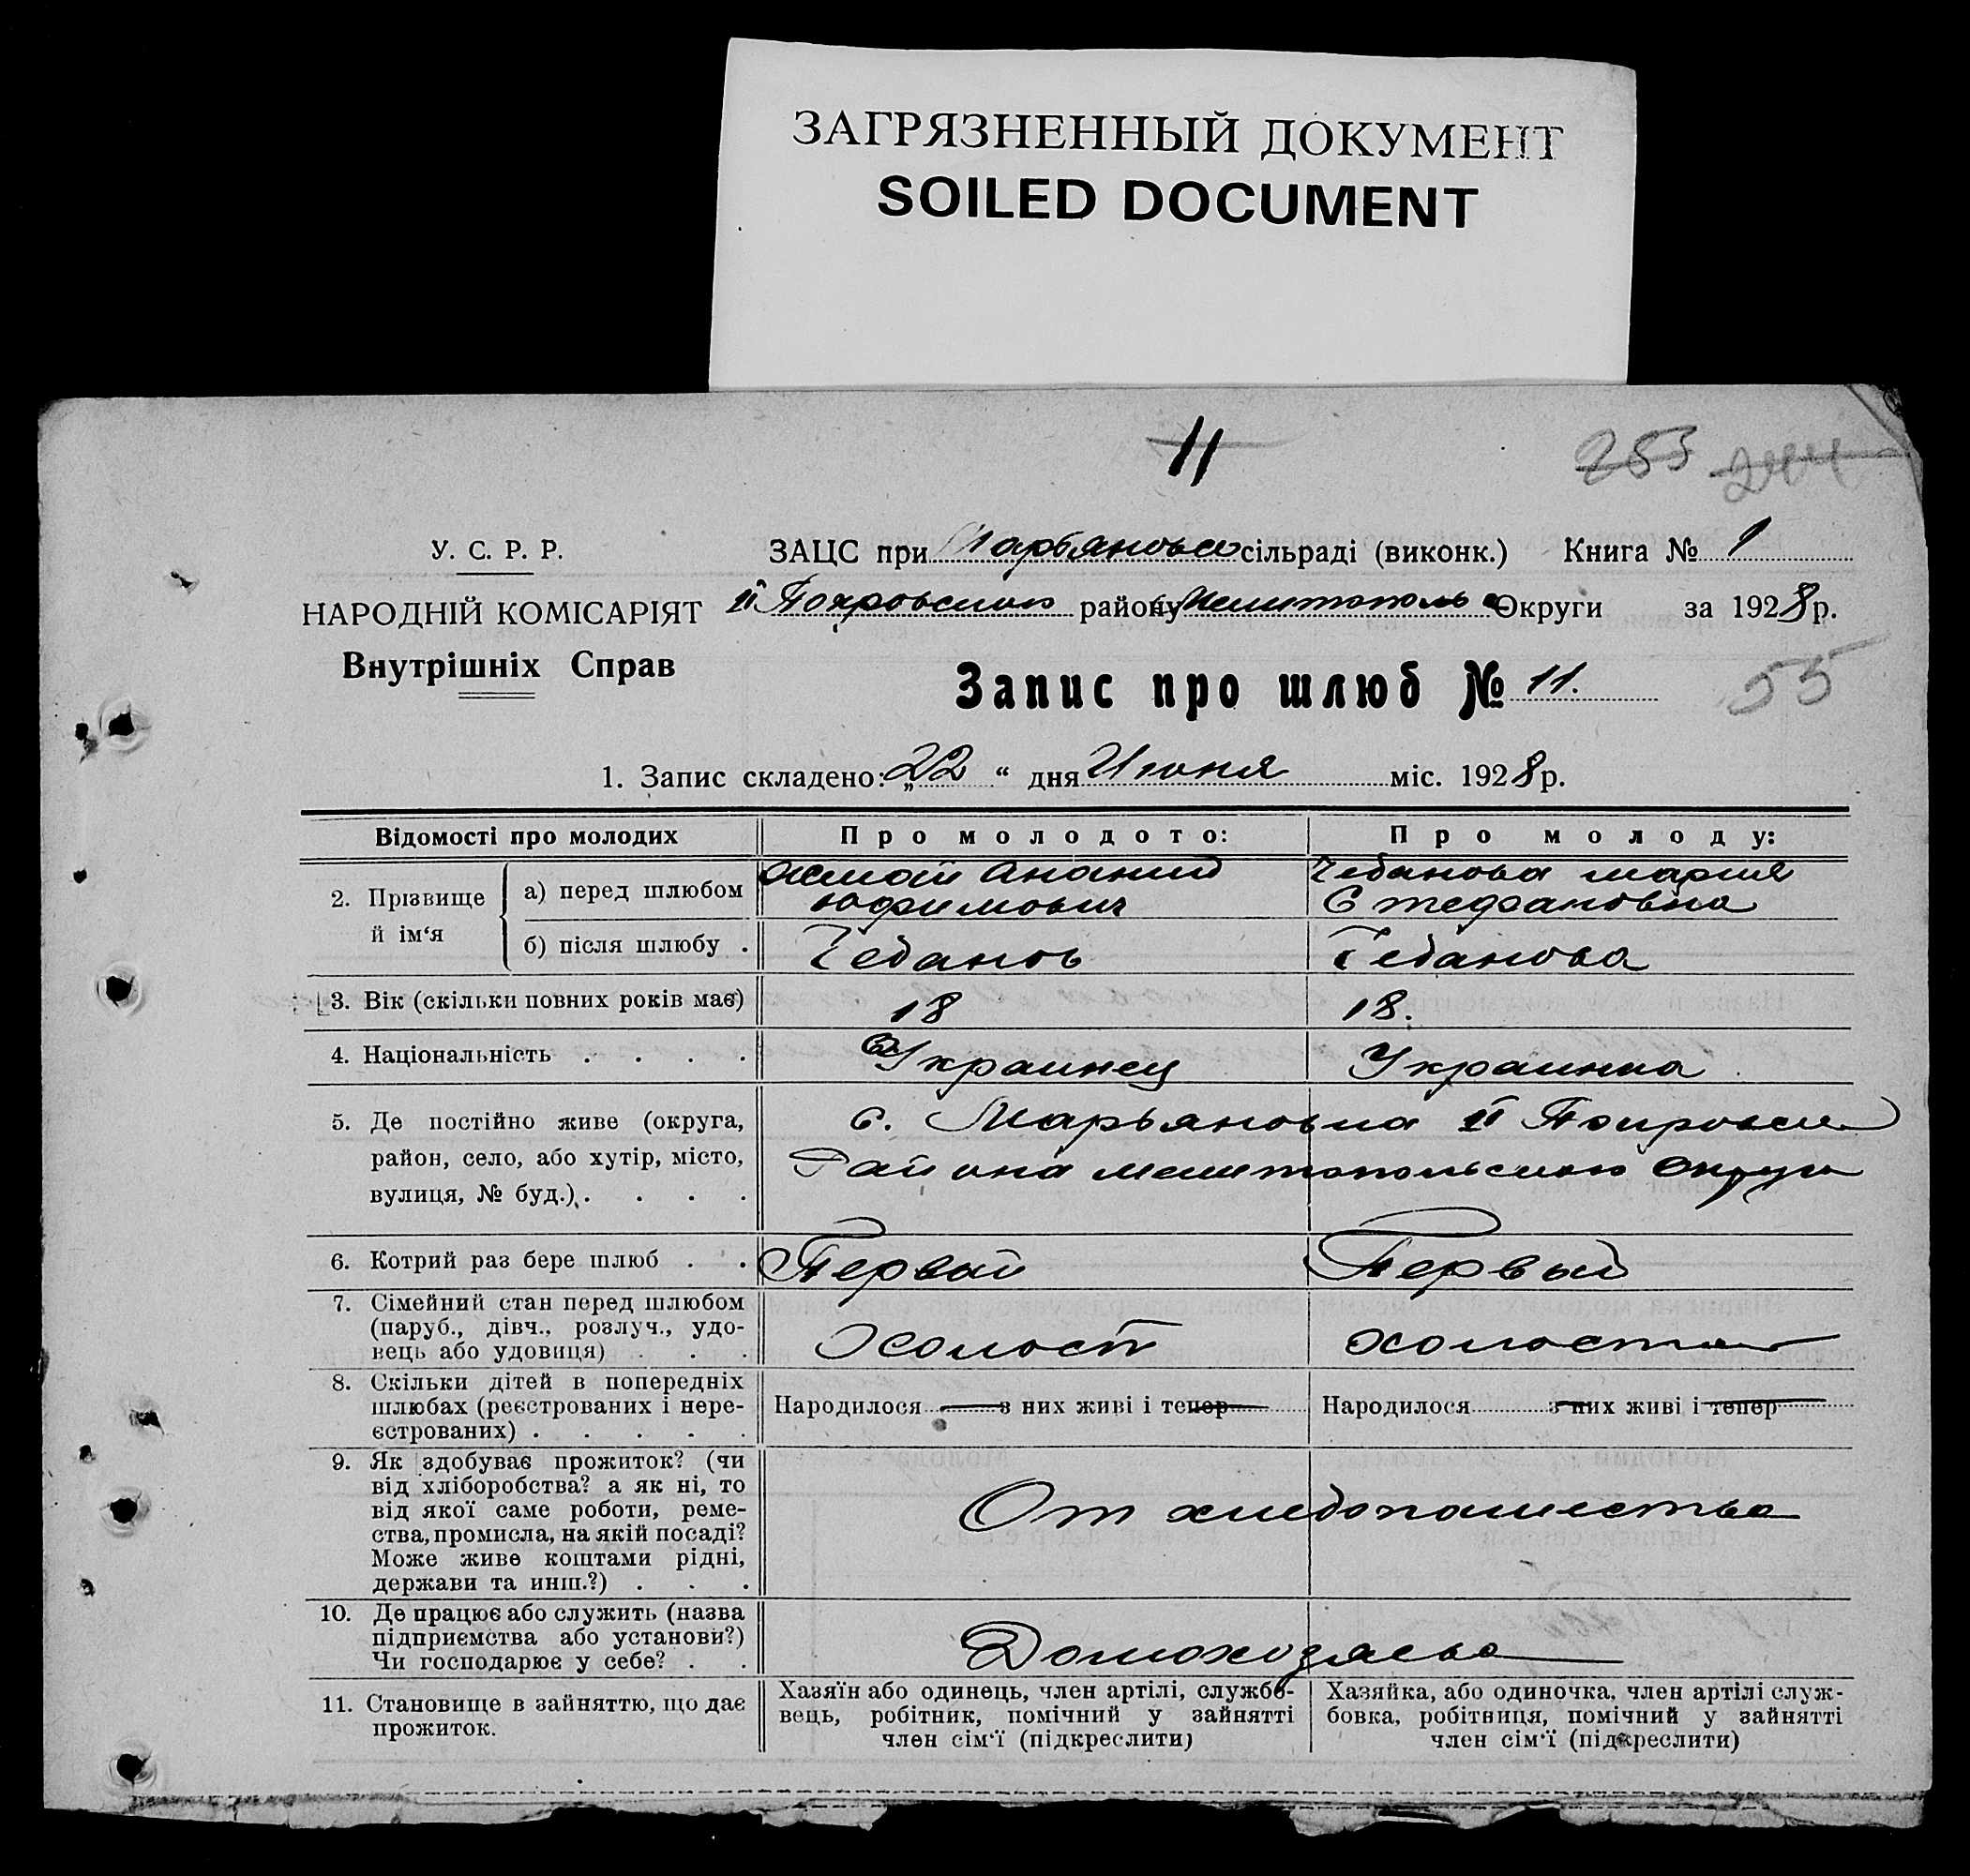 ЗАГРЯЗНЕННЫЙ ДОКУМЕНТ
SOILED DOCUMENT
11
253 244
У. С. Р. Р.
ЗАЦС при Марьяновск сільраді (виконк.) Книга № 1
НАРОДНІЙ КОМІСАРІЯТ
II Покровского району Мелитополь Округи за 1928 р.
Внутрішніх Справ
Запис про шлюб № 11.
55
1. Запис складено: „22 “ дня Июня міс. 1928 р.
Відомості про молодих
Про молодого:
Про молоду:
2. Прізвище й ім‘я
а) перед шлюбом
Ананий
Юфимович
Чебанова Мария
Стефановна
б) після шлюбу .
Чебанов
Чебанова
3. Вік (скільки повних років має)
18
18.
4. Національність . . . .
Украинец
Украинка
5. Де постійно живе (округа,
район, село, або хутір, місто,
вулиця, № буд.). . . .
с. Марьяновка II Покровск
Района Мелитопольского Округа
6. Котрий раз бере шлюб . .
Первый
Первый
7. Сімейний стан перед шлюбом
(паруб., дівч., розлуч., удо-
вець або удовиця) . . .
Холост
холостая
8. Скільки дітей в попередніх
шлюбах (реєстрованих і нере-
єстрованих) . . . . .
Народилося з них живі і тепер
Народилося з них живі і тепер
9. Як здобуває прожиток? (чи
від хліборобства? а як ні, то
від якої саме роботи, реме-
ства, промисла, на якій посаді?
Може живе коштами рідні,
держави та инш.?) . . .
От хлебопашества
10. Де працює або служить (назва
підприємства або установи?)
Чи господарює у себе? . .
Домохозяева
11. Становище в зайняттю, що дає
прожиток.
Хазяїн або одинець, член артілі, службо-
вець, робітник, помічний у зайнятті
член сім‘ї (підкреслити)
Хазяйка, або одиночка, член артілі служ-
бовка, робітниця, помічний у зайнятті
член сім‘ї (підкреслити)